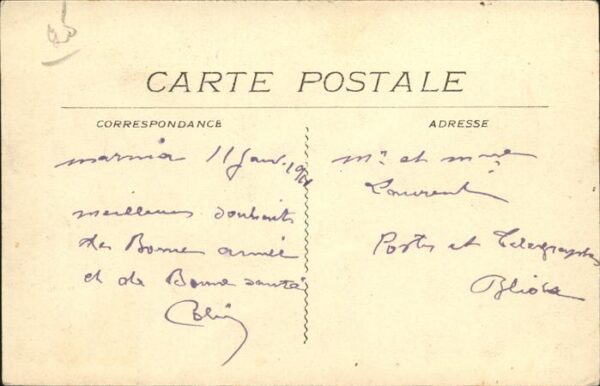 CARTE POSTALE
CORRESPONDANCE
ADRESSE
marnia 11 Janv.
meilleurs souhaits
de Bonne année
et de Bonne santé
Mr et Mme
Laurent
Postes et Telegraphes
Blida